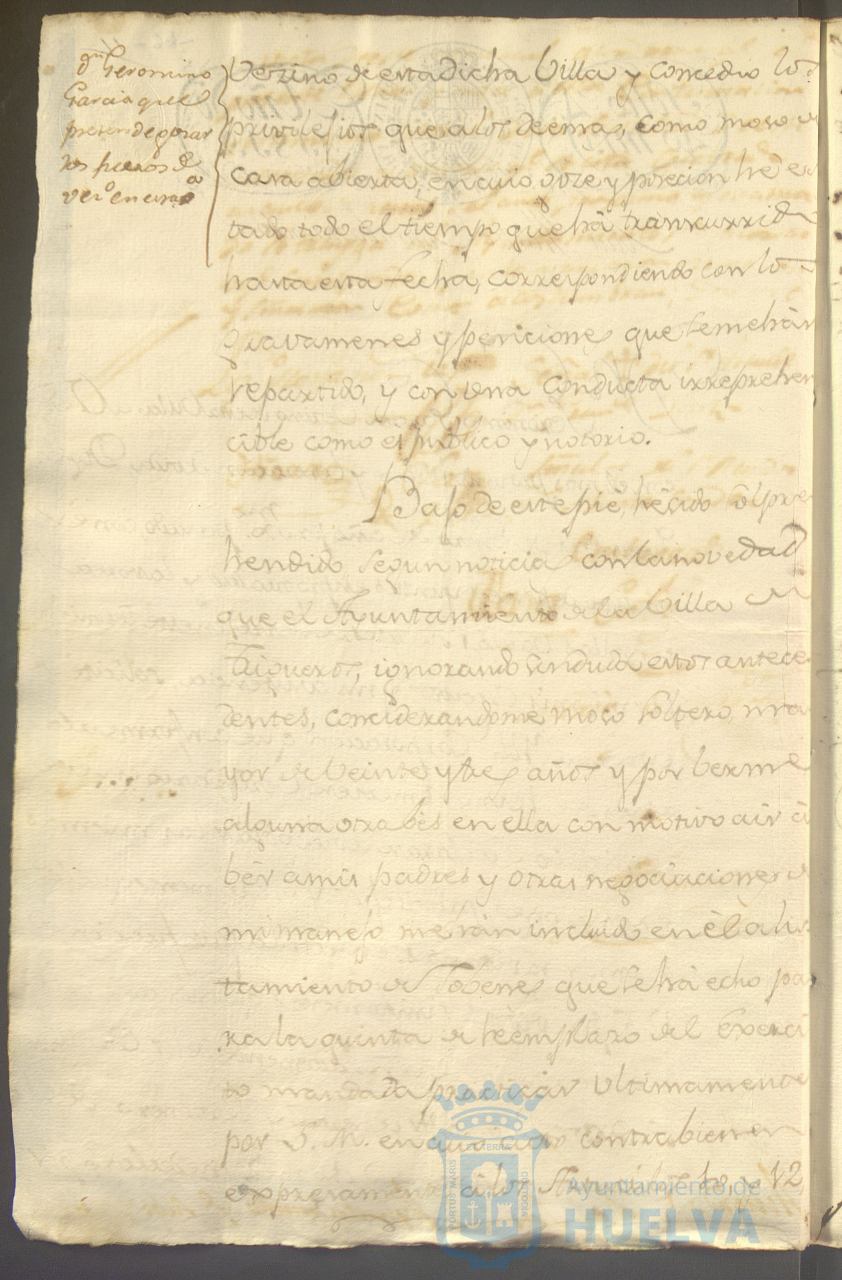 dn Geromino
Garcia que
pretende gosar
los fueros de
vez.o en esta
Vezino de esta dicha Villa y concedio los
privilejios que a los demas, como moso de
casa abierta, en cuio goze y posecion he es
tado todo el tiempo q.e ha transcurrido
hasta esta fecha, correspondiendo con los
gravamenes y penciones que se me hán
repartido, y con una conducta irreprehen
cible como es publico y notorio.
Bajo de este pie, he sido
hendido segun noticia con la novedad
que el Ayuntamiento de la Villa de
Trigueros, ignorando sin duda estos antece
dentes, conciderandome moso soltero, ma
yor de veinte y tres años y por berme
alguna otra bés en ella con motivo a ir á
bér a mis padres y otras negociaciones de
mi manejo me ván incluido en él alis
tamiento de Jobenes que se há echo pa
ra la quinta de heemplazo del Exerci
to mandada practicár ultimamente
por S. M. en contrabienen
expresamente á los Articulos 10, y 12
Ayuntamiento de
HUELVA
PORTUS MARIS
ET TERRÆ
CUSTODIA